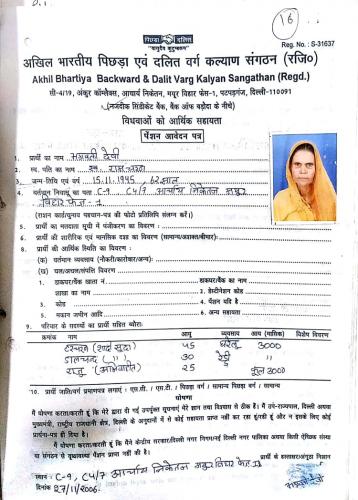 D.1
16
पिछड़ा दलित
"वसुधैव कुटुम्बकम्"
Reg. No. : S-31637
अखिल भारतीय पिछड़ा एवं दलित वर्ग कल्याण संगठन (रजि०)
Akhil Bhartiya Backward & Dalit Varg Kalyan Sangathan (Regd.)
सी-4/19, अंकुर कॉम्प्लैक्स, आचार्य निकेतन, मयूर विहार फेस-1, पटपड़गंज, दिल्ली-110091
(नजदीक सिंडीकेट बैंक, बैंक ऑफ बड़ौदा के नीचे)
विधवाओं को आर्थिक सहायता
पेंशन आवेदन पत्र
1. प्रार्थी का नाम भगवती देवी
2. स्व. पति का नाम स्व.
3. जन्म-तिथि एवं वर्ष 15.11.1945, 62 साल
4. वर्तमान निवासू का पता C-9, C4/7 आचार्य निकेतन मयूर
विहार फेज-1
(राशन कार्ड/चुनाव पहचान-पत्र की फोटो प्रतिलिपि संलग्न करें।)
5. प्रार्थी का मतदाता सूची में पंजीकरण का विवरण :
6. प्रार्थी की शारीरिक एवं मानसिक दशा का विवरण (सामान्य/अशक्त/बीमार):
8. प्रार्थी की आर्थिक स्थिति का विवरण :
(क) वर्तमान व्यवसाय (नौकरी/कारोबार/अन्य):
(ख) चल/अचल/संपत्ति विवरण :
1. डाकघर/बैंक खाता नं. डाकघर/बैंक का नाम :
2. शाखा का नाम : 3. डेस्टीनेशन कोड :
3. कोड 4. पेंशन यदि है :
5. मकान जमीन आदि : 6. अन्य सहायता :
9. परिवार के सदस्यों का प्रार्थी सहित ब्यौरा:
क्रमांक नाम आयु व्यवसाय आय (मासिक) विशेष विवरण
(शादी शुदा) 45 घरेलू 3000
डालचन्द ( " ) 30
राजू (अविवाहित) 25 कुल 3000
*10. प्रार्थी जाति/वर्ग प्रमाणपत्र लगाएं : एस.सी. / एस.टी. / पिछड़ा वर्ग / सामान्य पिछड़ा वर्ग / सामान्य
घोषणा
मैं घोषणा करता/करती हूं कि मेरे द्वारा दी गई उपर्युक्त सूचनाएं मेरे ज्ञान तथा विश्वास से ठीक हैं। मैं उप-राज्यपाल, दिल्ली अथवा
मुख्यमंत्री, राष्ट्रीय राजधानी क्षेत्र, दिल्ली के अनुदानों में से कोई सहायता प्राप्त नहीं कर रहा हूं/रही हूं और न इसके लिए कोई
प्रार्थना-पत्र ही दिया है।
मैं घोषणा करता/करती हूं कि मैंने केन्द्रीय सरकार/दिल्ली नगर निगम/नई दिल्ली नगर पालिका अथवा किसी ऐच्छिक संस्था
या संगठन से वृद्धावस्था पेंशन प्राप्त नहीं की है।
प्रार्थी के हस्ताक्षर/अंगूठा निशान
स्थान :- C-9, C4/7 आचार्य निकेतन मयूर विहार फेज-1
दिनांक 27/11/2006